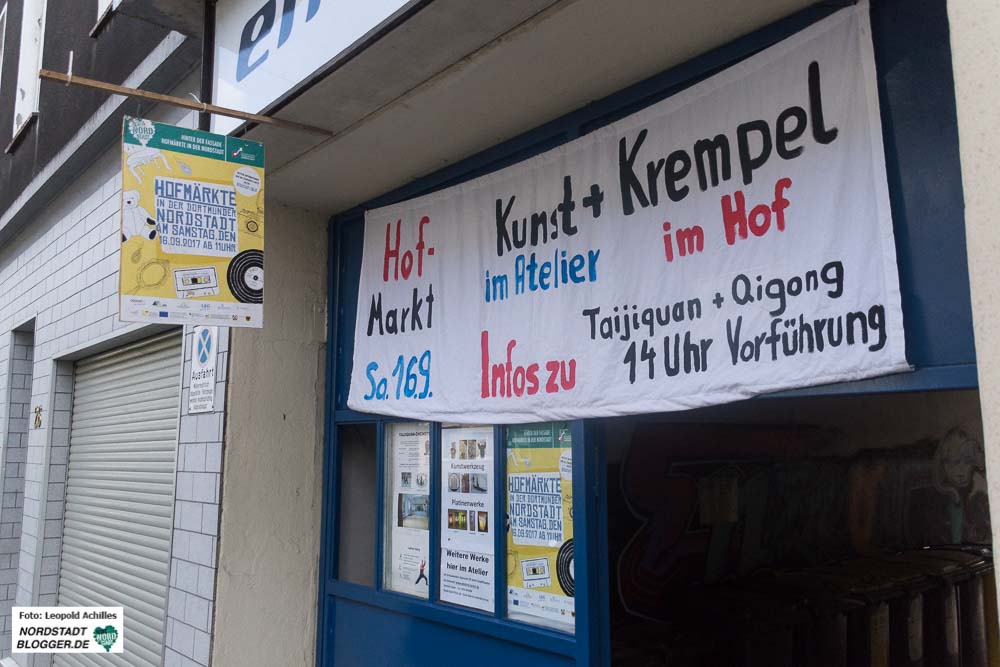 en
NORD STADT
HINTER DER FASSADE
HOFMÄRKTE IN DER NORDSTADT
HOFMÄRKTE
IN DER DORTMUNDER
NORDSTADT
AM SAMSTAG, DEN
16.09.2017 AB 11UHR
Hof-
Markt
Sa. 16.9.
Kunst + Krempel
im Atelier
im Hof
Infos zu
Taijiquan + Qigong
14 Uhr Vorführung
Ausfahrt
26
Kunstwerkzeug
Platinenwerke
Weitere Werke
hier im Atelier
HOFMÄRKTE
IN DER DORTMUNDER
NORDSTADT
AM SAMSTAG, DEN
16.09.2017 AB 11UHR
Foto: Leopold Achilles
NORDSTADT
BLOGGER.DE
NORD STADT